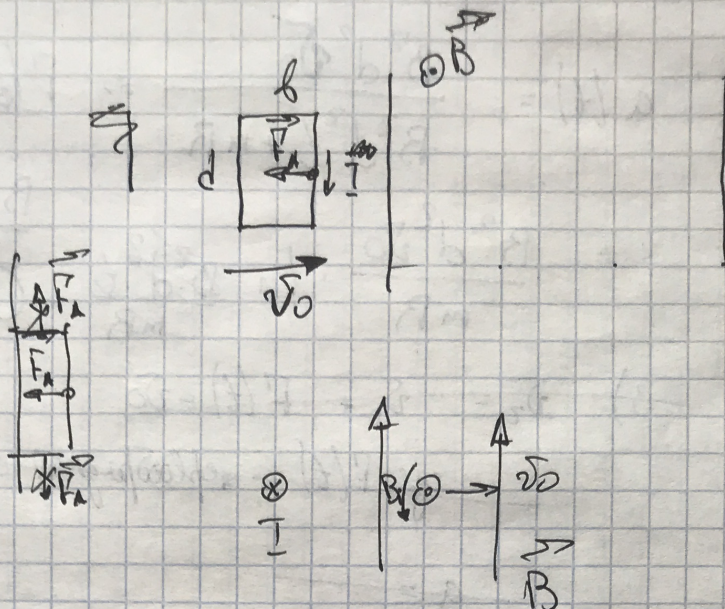 ⊙ B
b
d
F_A
I
v_0
F_A
F_A
F_A
⊗
I
B
⊙
v_0
B